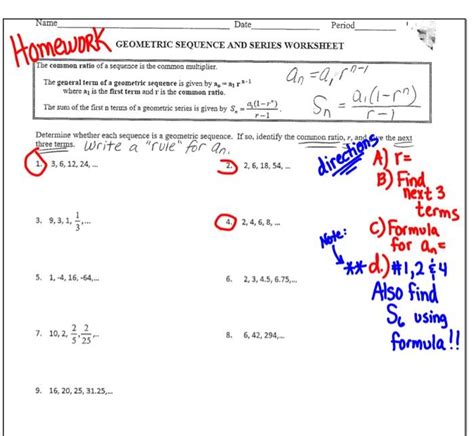 Name Date Period
Homework
GEOMETRIC SEQUENCE AND SERIES WORKSHEET
The common ratio of a sequence is the common multiplier.
The general term of a geometric sequence is given by aₙ = a₁ rⁿ⁻¹
where a₁ is the first term and r is the common ratio.
The sum of the first n terms of a geometric series is given by Sₙ = a₁(1−rⁿ)/r−1
aₙ = a₁ rⁿ⁻¹
Sₙ = a₁(1−rⁿ)/r−1
Determine whether each sequence is a geometric sequence. If so, identify the common ratio, r, and give the next
three terms. Write a "rule" for aₙ.
1. 3, 6, 12, 24, ...
2. 2, 6, 18, 54, ...
3. 9, 3, 1, 1/3, ...
4. 2, 4, 6, 8, ...
5. 1, -4, 16, -64,...
6. 2, 3, 4.5, 6.75,...
7. 10, 2, 2/5, 2/25, ..
8. 6, 42, 294,...
9. 16, 20, 25, 31.25,...
directions
A) r=
B) Find
next 3
terms
C) Formula
for aₙ=
Note:
**d.) #1, 2 & 4
Also find
S₆ using
formula!!